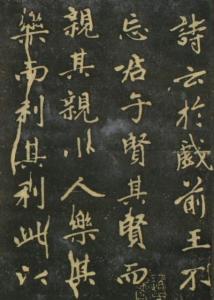 詩云於戲前王不
忘君子賢其賢而
親其親小人樂其
樂而利其利此以